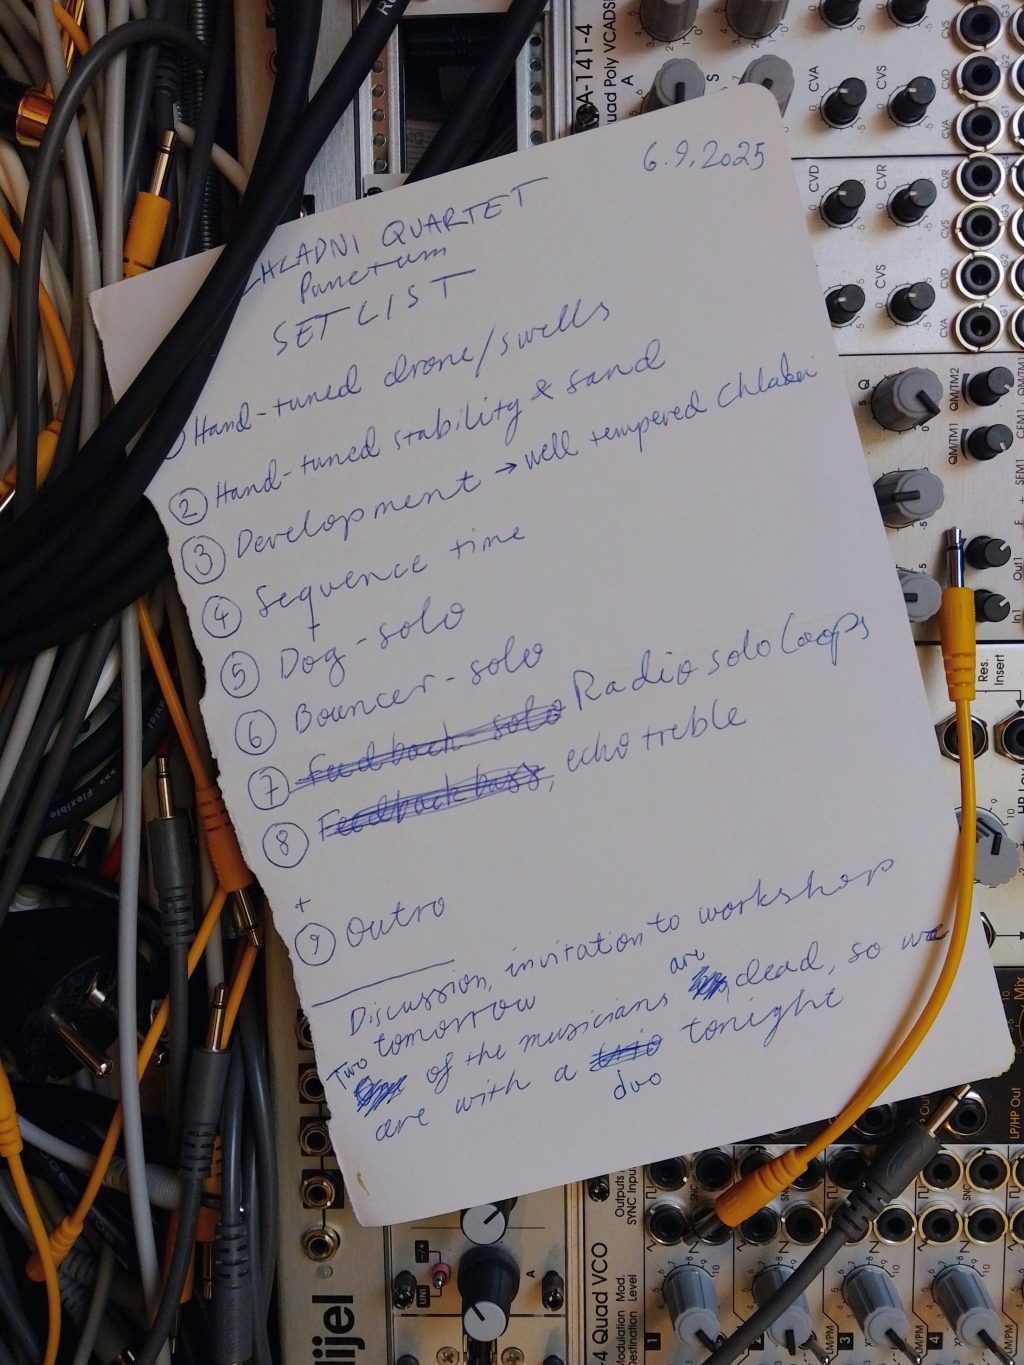 A-141-4
Quad Poly VCADSR
6.9.2025
CHLADNI QUARTET
Punctum
SETLIST
1 Hand-tuned drone/swells
2 Hand-tuned stability & sand
3 Development → well tempered Chladni
4 Sequence time
+
5 Dog-solo
6 Bouncer-solo
7 Feedback-solo Radio solo loops
8 Feedback bass, echo treble
+
9 Outro
Discussion, invitation to workshop
tomorrow
Two of the musicians are dead, so we
are with a trio tonight
duo
CVA
CVS
CVD
CVR
CVS
Q
QM/TM2
QM/TM1
Out1
In1
Res.
Insert
Flexible
Mix
LP/HP Out
Outputs
SYNC Input
4 Quad VCO
Modulation Mod.
Destination Level
UNI
A
1
3
4
lijel